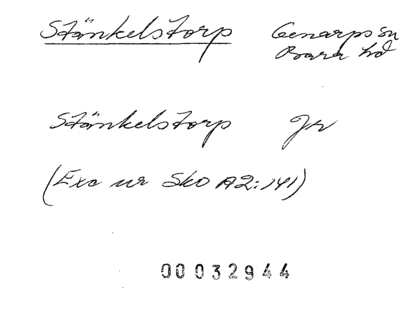 Stänkelstorp Genarps sn
Bara hd
Stänkelstorp Jr
(Exc ur Sko A2:141)
00032944